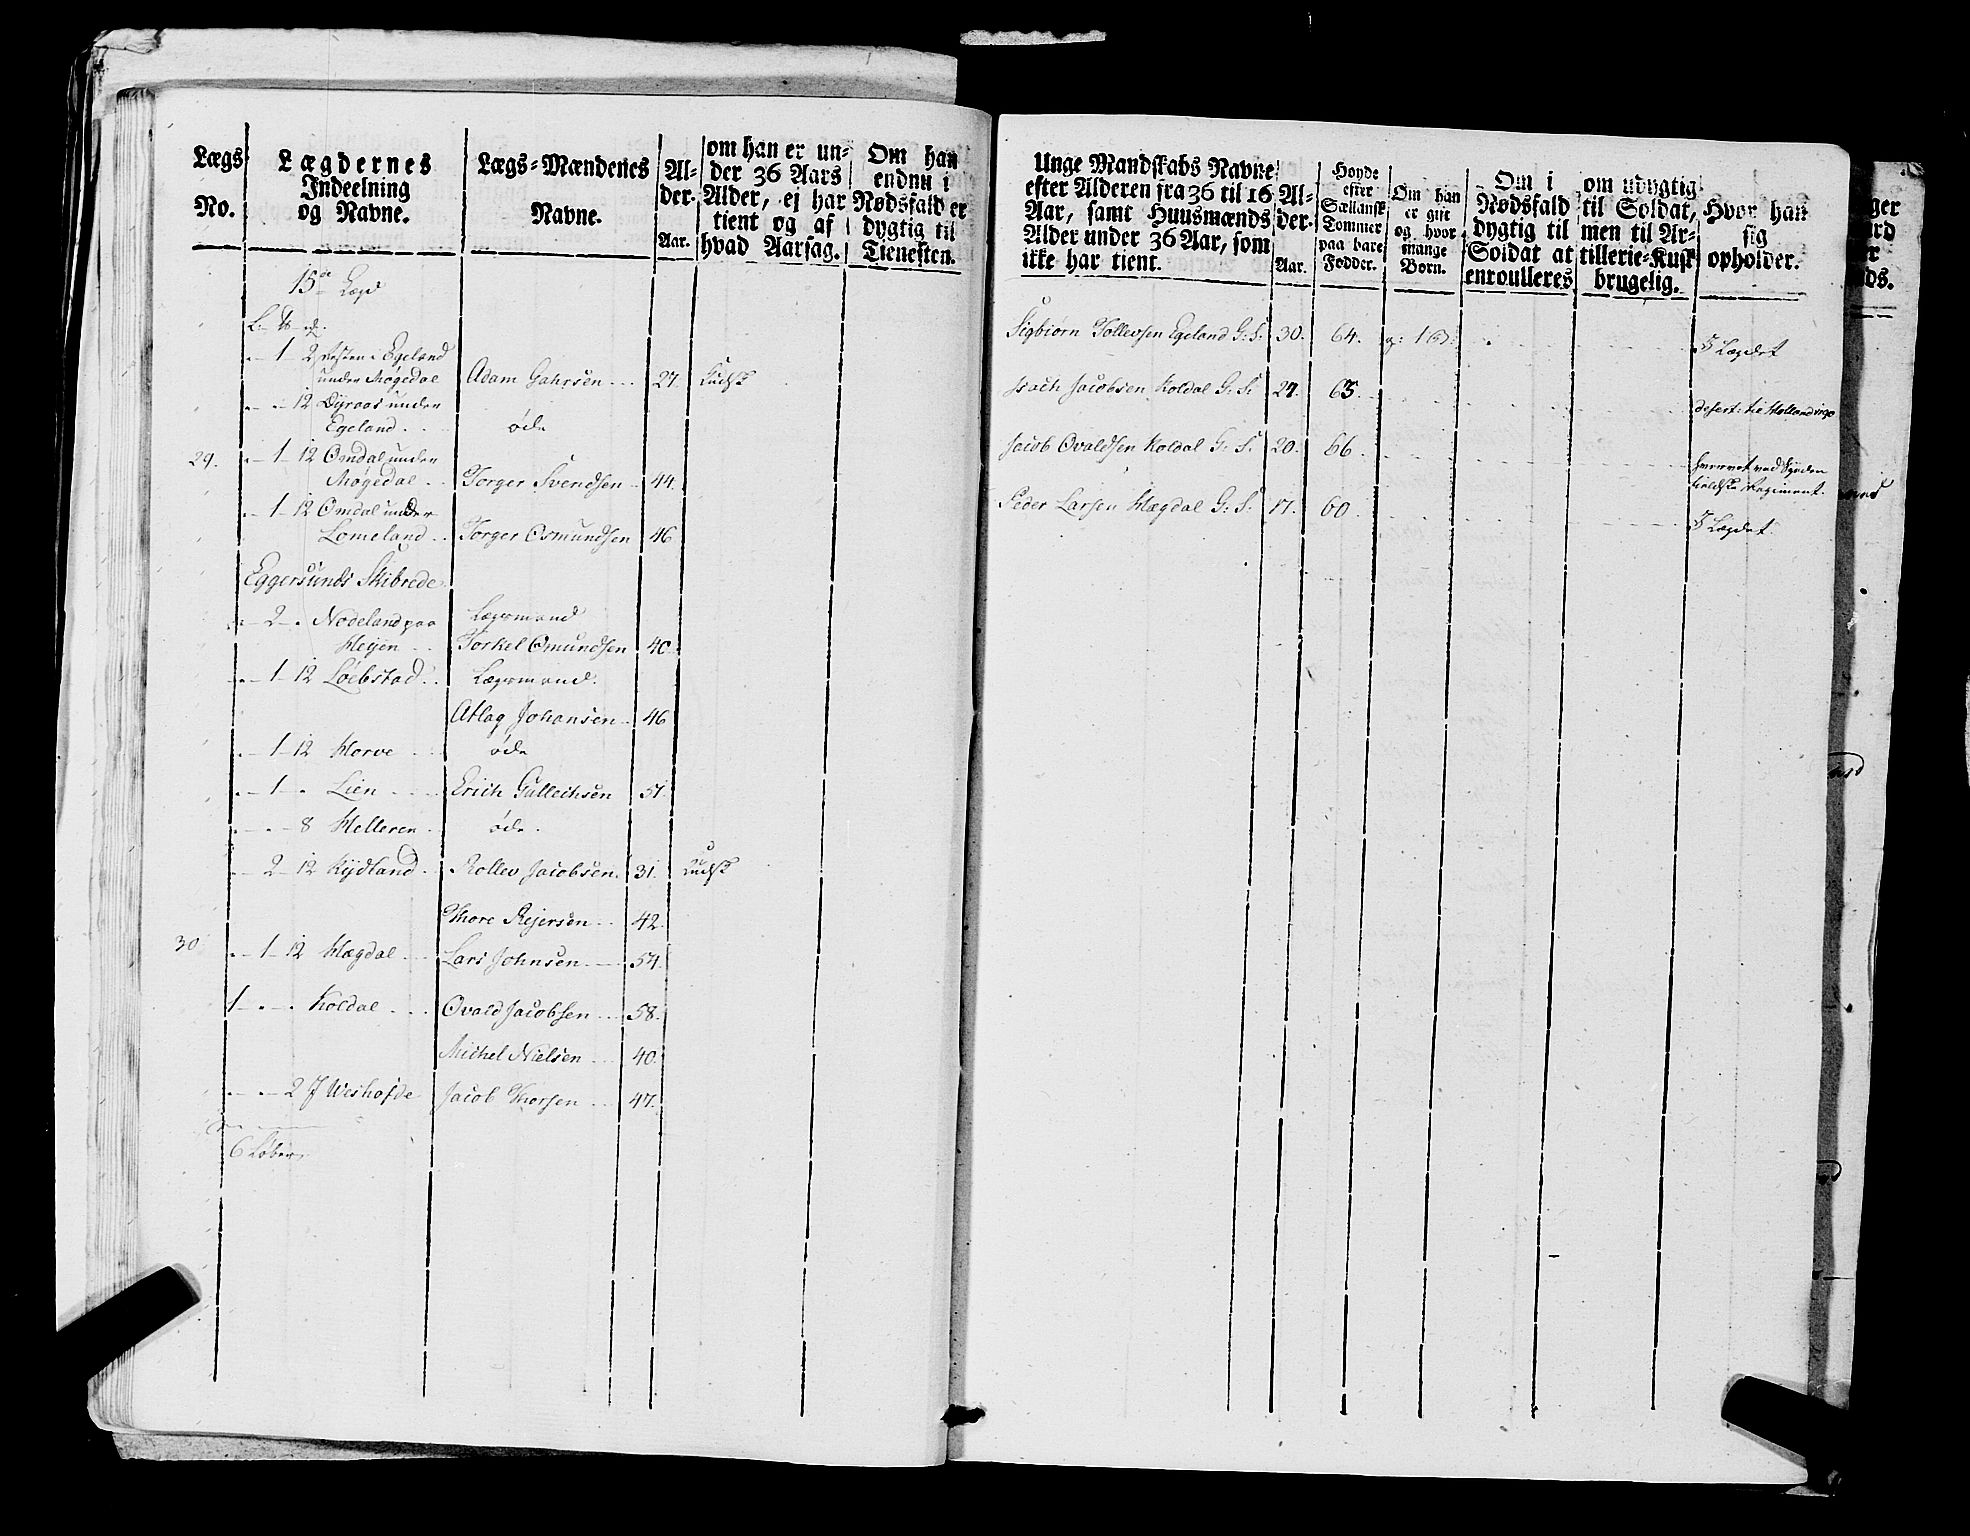 Lægs No.
Lægdernes
Indeelning
og Navne.
Lægs-Mændenes
Navne.
Al-
der.
Aar.
om han er un-
der 36 Aars
Alder, ej har
tient og af
hvad Aarsag.
Om han
endnu i
Nødsfald er
dygtig til
Tienesten.
15de Lægd
1 2 Resten i Egeland
under Møgedal Adam Gahrsen 27. Kudsk
12 Dyraas under
Egeland øde
29. 1 12 Omdal under
Møgedal Torger Svendsen 44.
1 12 Omdal under
Lomeland Torger Osmundsen 46
Eggersunds Skibrede
2 Nodeland paa Lægsmand
Heyen Torkel Omundsen 40.
1 12 Løebstad Lægsmand.
Atlag Johansen 46
1 12 Horve øde
1 Lien Erich Gulleichsen 51.
8 Helleren øde.
2 12 Kydland Rollev Jacobsen 31. Kudsk
Thore Rejersen 42.
30 1 12 Hægdal Lars Johnsen 54.
1 Koldal Ovald Jacobsen 58.
Michel Nielsen 40.
2 J Weshofde Jacob Thorsen 47.
6 Løber
Unge Mandskabs Navne
efter Alderen fra 36 til 16
Aar, samt Huusmænds
Alder under 36 Aar, som
ikke har tient.
Al-
der.
Aar.
Høyde
efter
Sællansk
Tommer
paa bare
Fødder.
Om han
er gift
og hvor
mange
Børn.
Om i
Nødsfald
dygtig til
Soldat at
enroulleres
om udygtig
til Soldat,
men til Ar-
tillerie-Kusk
brugelig.
Hvor han
sig
opholder.
Sigbiørn Tollevsen Egeland G: S: 30. 64. g: 1 B:
I Lægdet
Isach Jacobsen Koldal G: S: 24. 63.
desert: til Holland 1790
Jacob Ovaldsen Koldal G: S: 20. 66.
hvervet ved Synden
fieldske Regiment.
Peder Larsen Hægdal G: S: 17. 60.
I Lægdet.